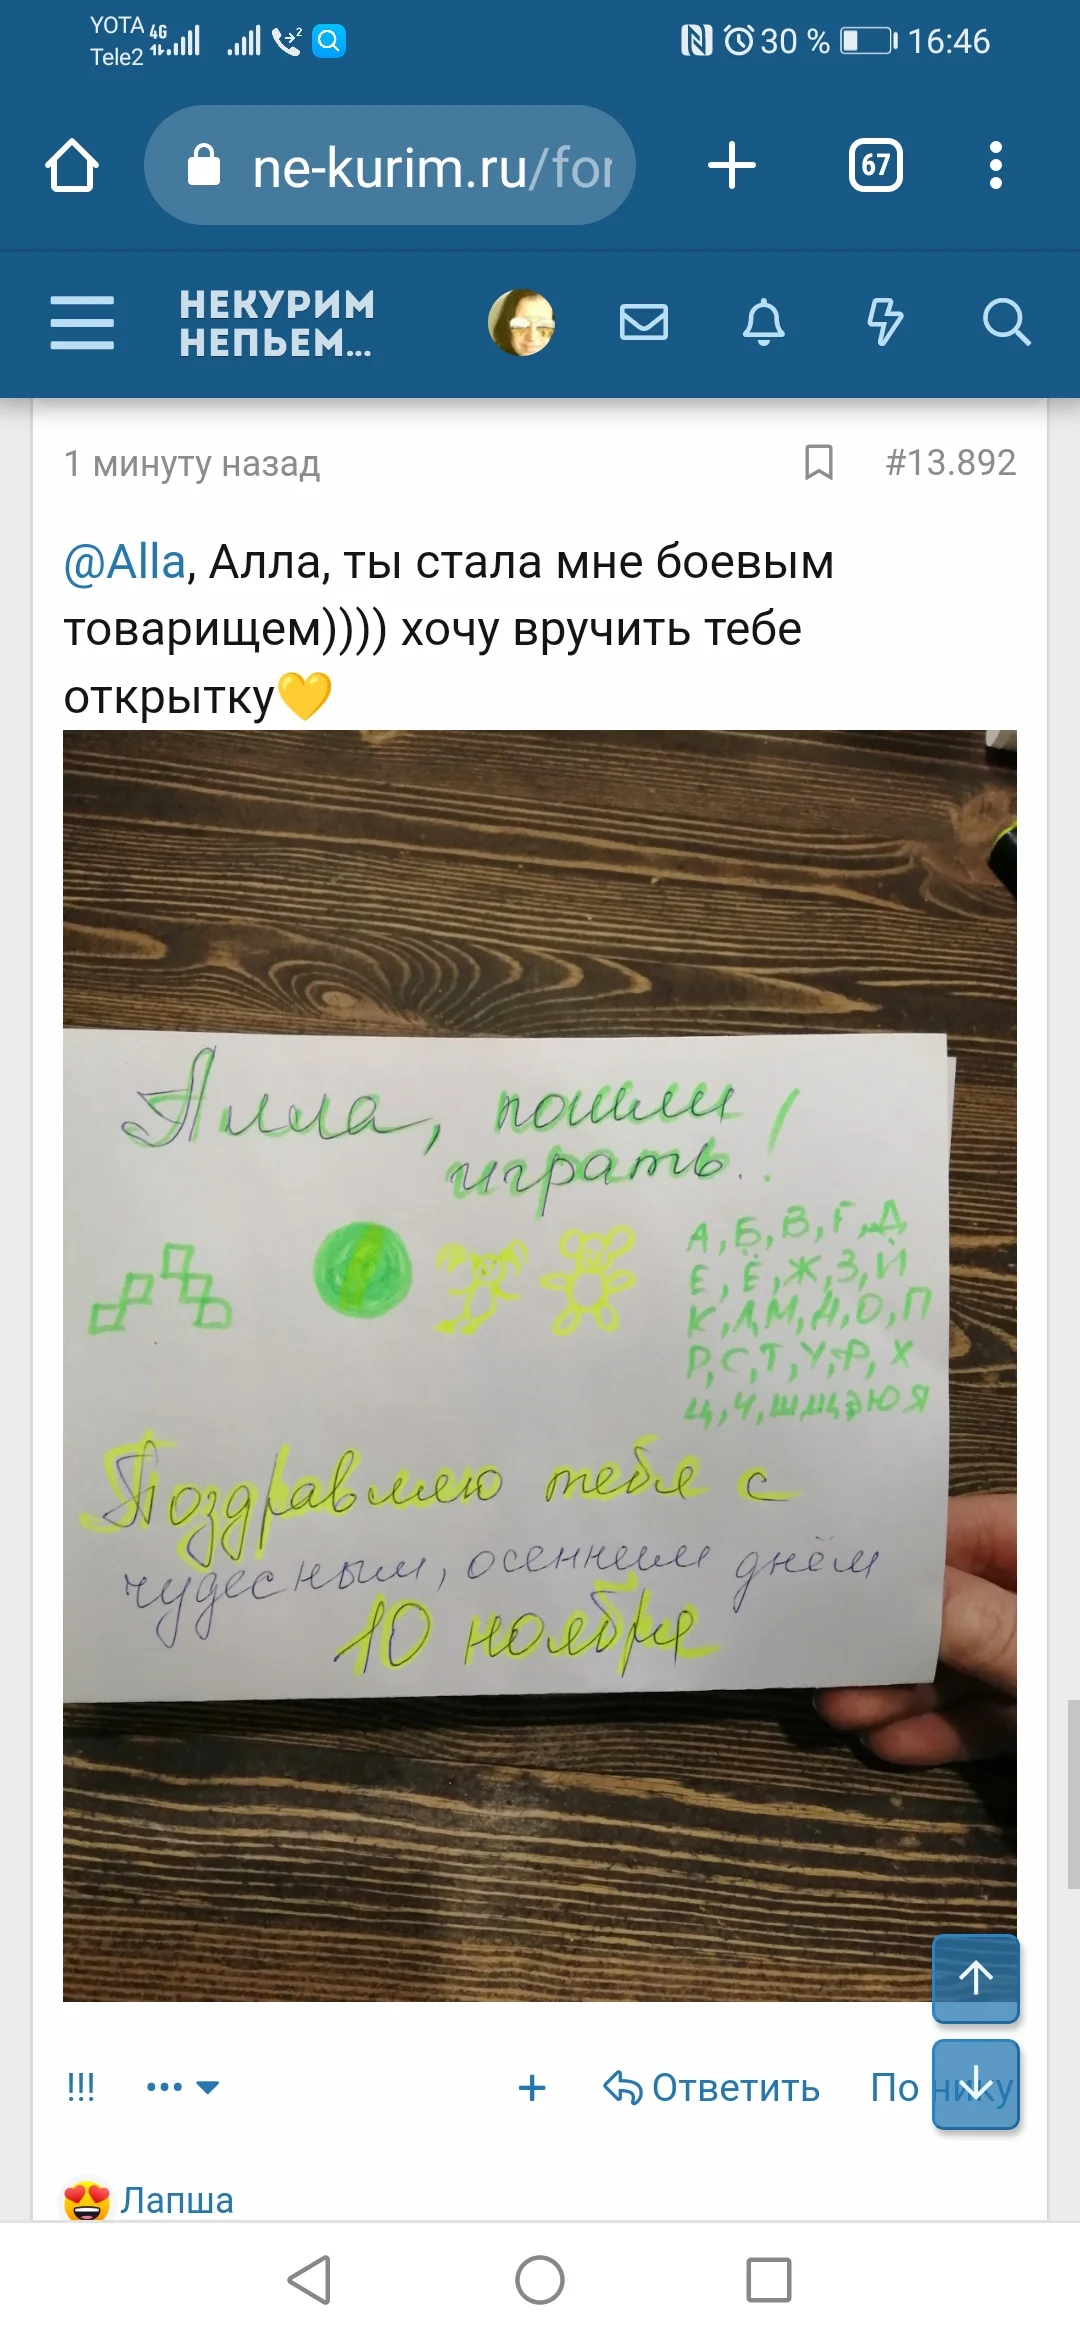 YOTA 4G
Tele2
2
30 % 16:46
ne-kurim.ru/for
67
НЕКУРИМ
НЕПЬЕМ...
1 минуту назад #13.892
@Alla, Алла, ты стала мне боевым
товарищем)))) хочу вручить тебе
открытку💛
Алла, пошли
играть!
А, Б, В, Г, Д
Е, Ё, Ж, З, Й
К, Л, М, Н, О, П
Р, С, Т, У, Ф, Х
Ц, Ч, Ш, Щ, Э Ю Я
Поздравляю тебя с
чудесным, осенним днём
10 ноября
!!! ••• + Ответить По нику
Лапша